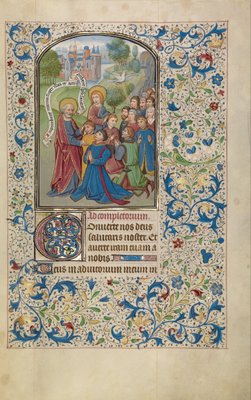 Ad completorium.
Onuerte nos deus
salutaris noster. Et
auerte iram tuam a
nobis
Deus in adiutorium meum in